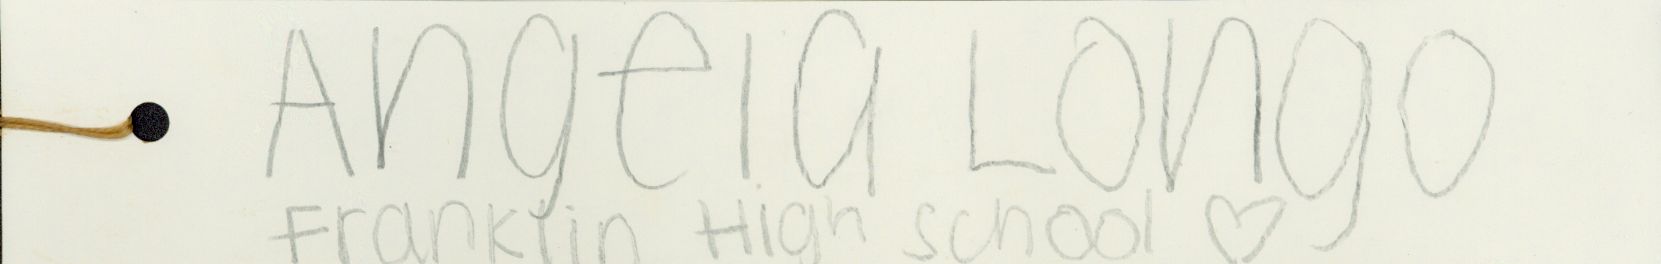 Angela Longo
Franklin High School ♡